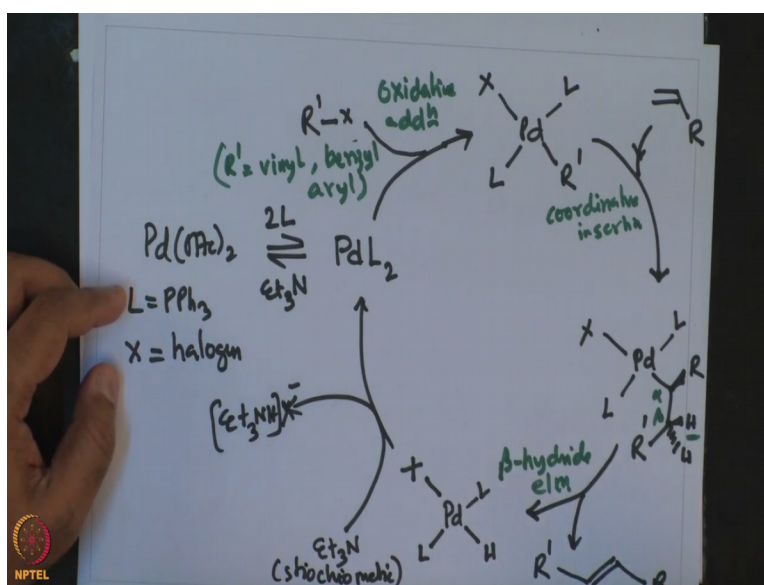 R'-X
Oxidative
addn
(R' = vinyl, benzyl
aryl)
X
L
Pd
L
R'
R
coordinative
insertn
Pd(OAc)2
2L
Et3N
PdL2
L = PPh3
X = halogen
X
L
Pd
R
α
L
β
H
R'
H
[Et3NH]X-
β-hydride
elm
X
L
Pd
L
H
Et3N
(stiochiometic)
R'
R
NPTEL